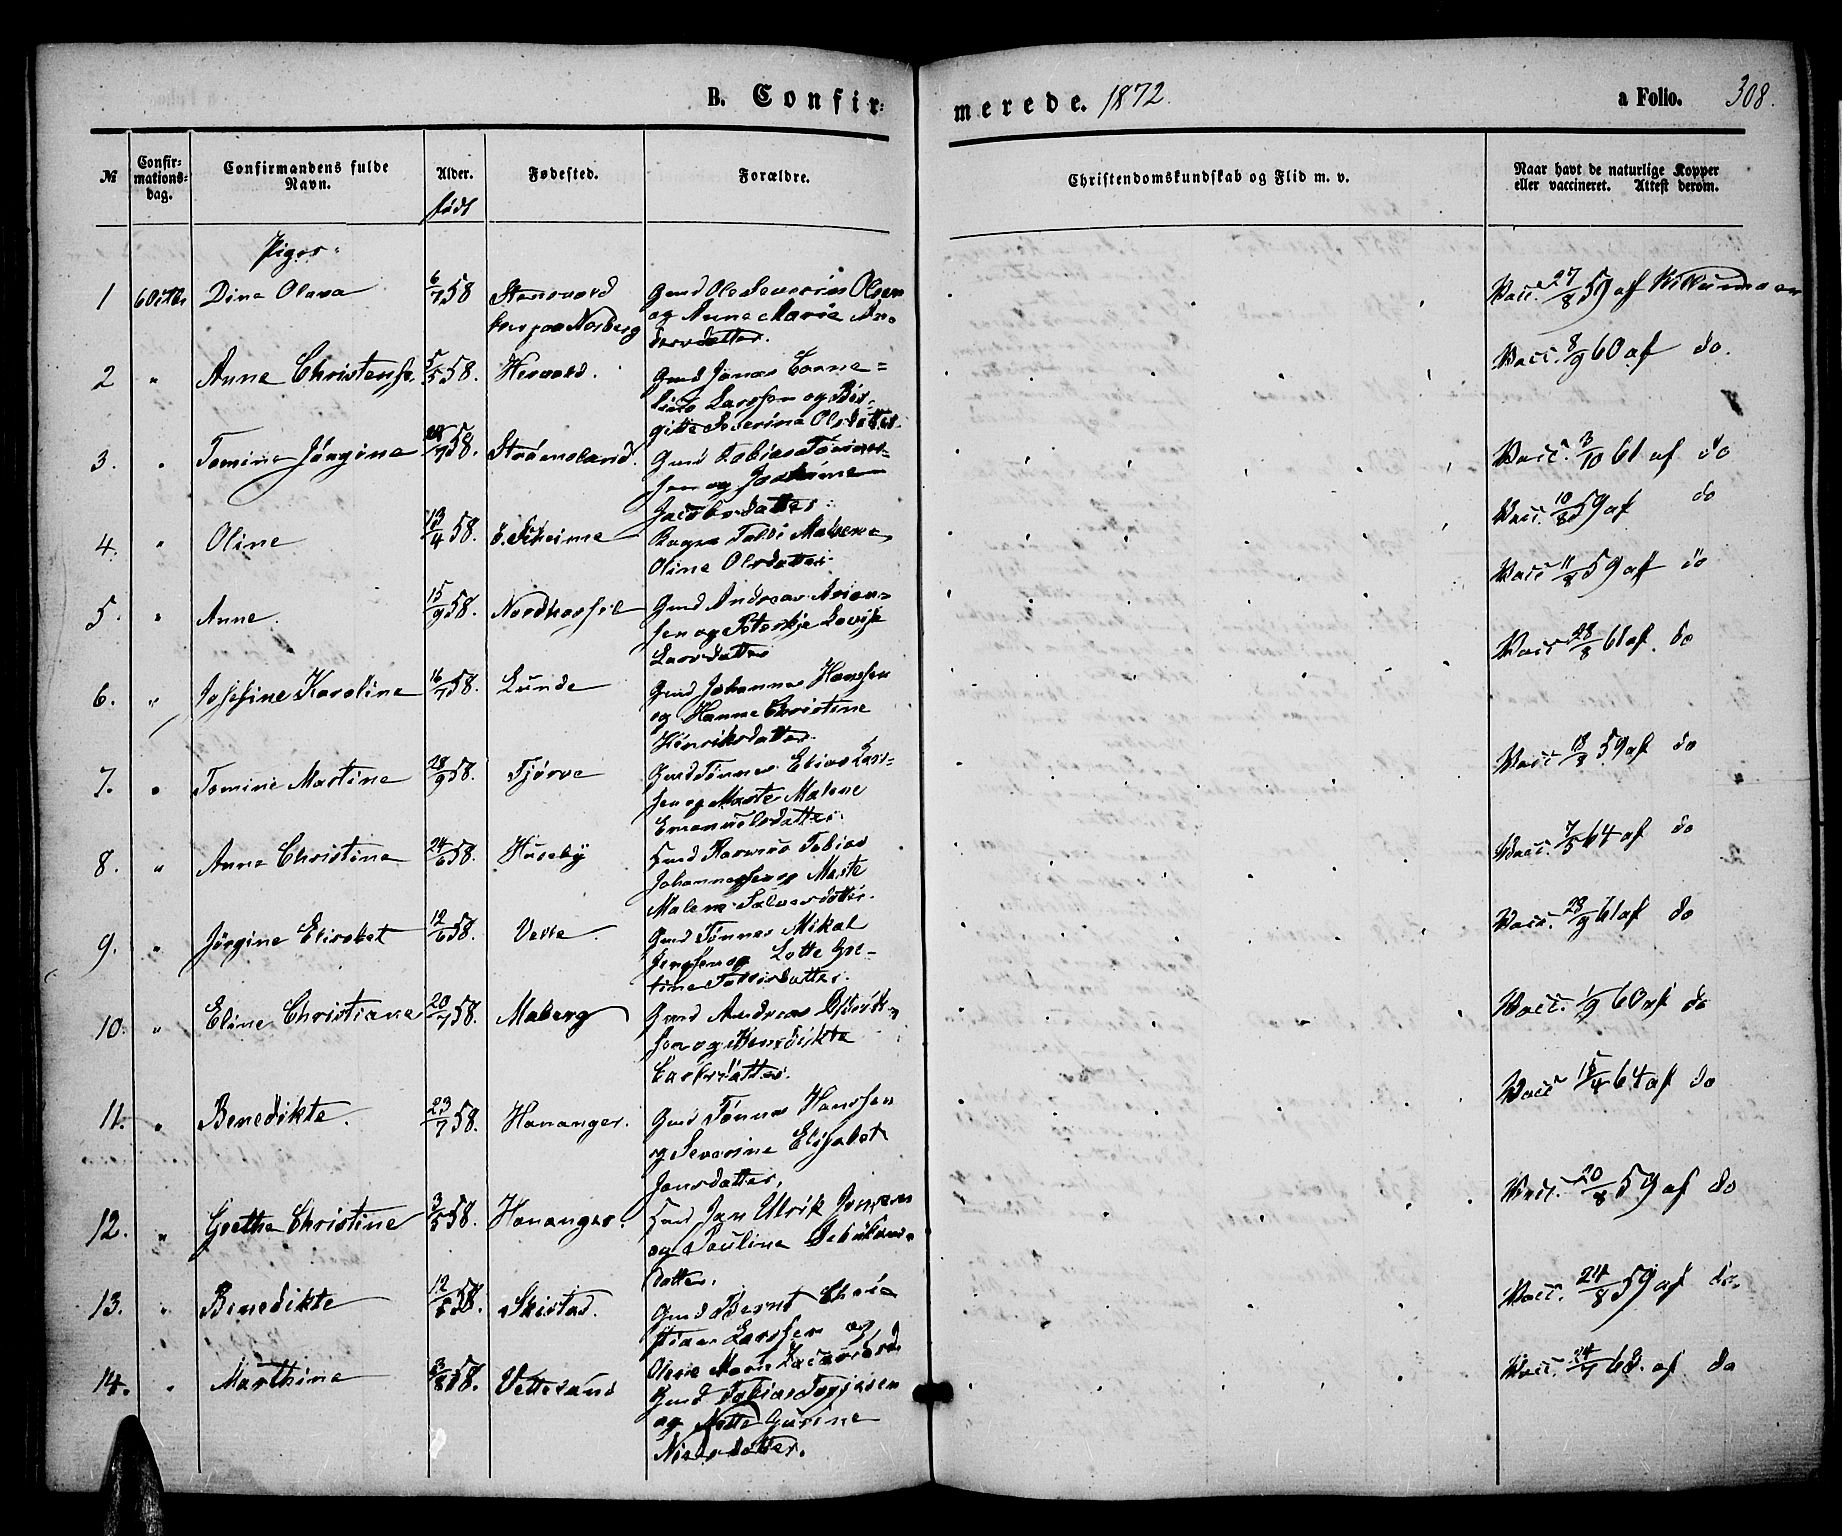 B. Confir-
merede. 1872.
a Folio. 308.
№
Confir-
mations-
dag.
Confirmandens fulde
Navn.
Alder.
født
Fødested.
Forældre.
Christendomskundskab og Flid m. v.
Naar havt de naturlige Kopper
eller vaccineret. Attest derom.
Piger.
1 6 Oktbr Dine Olava 6/7 58
Gmd Ole Severin Olsen
og Anne Marie An-
dersdatter.
Vacc. 27/8 59 af
2 " Anne Christense 5/5 58. Hesvold.
Gmd Jonas Corne-
lius Larssen og Bir-
gitte Severine Olsdatter
Vacc. 8/9 60 af do.
3. " Tomine Jørgine 58. Strømsland.
Gmd Tobias
sen og
Jacobsdatter.
Vacc. 3/10 61 af do
4. " Oline 13/4 58.
Malene
Oline Olsdatter.
Vacc. 10/8 59 af do
5. " Anne. 15/9 58. Nordhassel
Gmd Andreas Arian-
sen og Peterkje Lovise
Larsdatter
Vacc 11/8 59 af do
6. " Josefine Karoline 16/7 58. Lunde
Gmd Johannes Hanssen
og Hanne Christine
Henriksdatter.
Vacc 28/8 61 af. do
7. " Tomine Martine 28/9 58. Tjørve
Gmd Tønnes Elias Lars-
sen og Marte Malene
Emanuelsdatter.
Vacc 18/8 59 af do
8. " Anne Christine 24/6 58. Huseby
Rasmus Tobias
Johannessen og Marte
Malene Salvesdatter.
Vacc. 7/5 64 af do
9. " Jørgine Elisabet 12/6 58. Vere.
Gmd Tønnes Mikal
Jenssen og Lotte Gu-
rine
Vacc. 23/9 61 af do
10. " Eline Christiane 20/7 58. Maberg
Gmd Andreas
sen og Benedikte
Vacc. 1/9 60 af do
11. " Benedikte. 23/7 58. Hananger.
Gmd Tønnes Hanssen
og Severine Elisabet
Jansdatter.
Vacc 15/4 64 af do
12. " Grethe Christine 3/5 58. Hananger
Jan Ulrik Jensen
og Pauline
datter.
Vacc. 20/8 59 af do
13. " Benedikte 58. Skistad.
Gmd Bernt Chri-
stian Larssen og
Olene Marie
Vacc. 24/8 59 af do.
14. " Marthine 58. Vettesund
Gmd Tobias Torjesen
og Gurine
Nielsdatter.
Vacc. af do